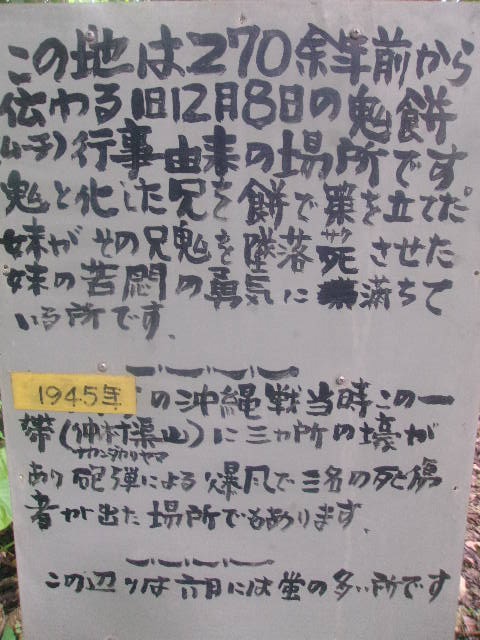 この地は270余年前から
伝わる旧12月8日の鬼餅
(ムーチー)行事由来の場所です
鬼と化した兄を餅で策を立てた
妹がその兄鬼を墜落死させた
妹の苦悶の勇気に満ちて
いる所です。
1945年の沖縄戦当時この一
帯(仲村渠山)に三ヵ所の壕が
サカンダカリヤマ
あり砲弾による爆風で三名の死傷
者が出た場所でもあります。
この辺りは六月には蛍の多い所です